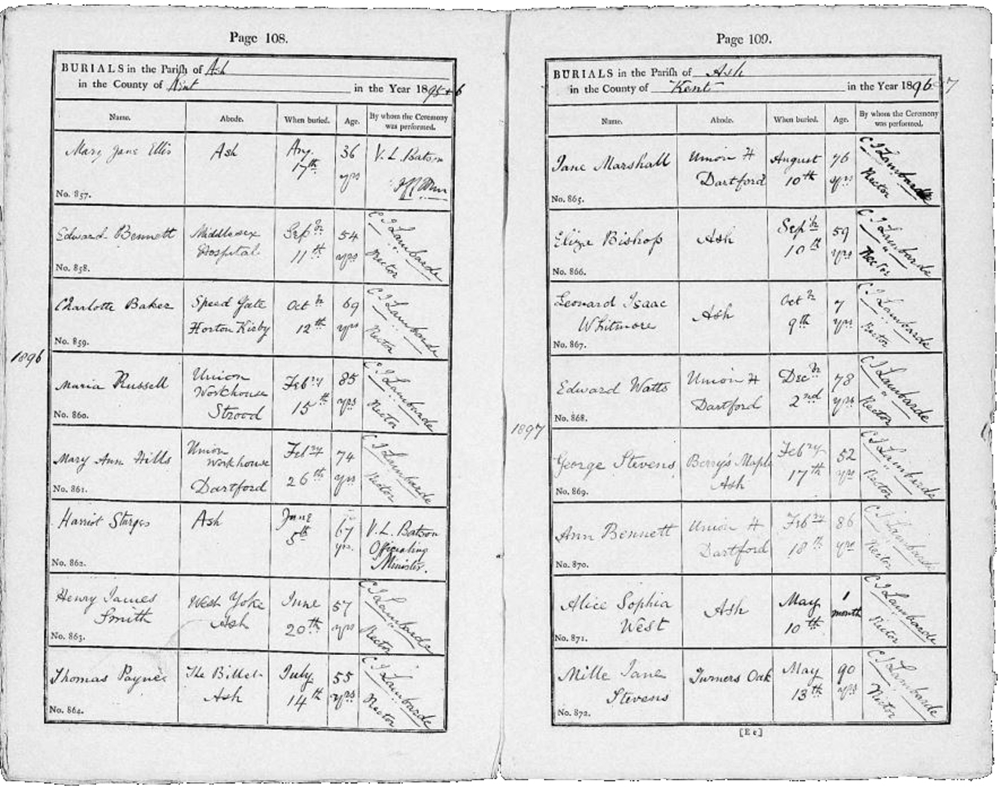 Page 108.
BURIALS in the Parish of Ash
in the County of Kent in the Year 1895+6
Name. Abode. When buried. Age. By whom the Ceremony was performed.
Mary Jane Ellis Ash Aug. 17th 36 yrs V. L. Batson
No. 857.
Edward Bennett Middlesex Hospital Sepbr 11th 54 yrs C I Lambarde Rector
No. 858.
Charlotte Baker Speed Gate Horton Kirby Octbr 12th 69 yrs C I Lambarde Rector
No. 859.
1896
Maria Russell Union Workhouse Strood Febry 15th 85 yrs C I Lambarde Rector
No. 860.
Mary Ann Hills Union Workhouse Dartford Febry 26th 74 yrs C I Lambarde Rector
No. 861.
Harriot Sturges Ash June 5th 67 yrs. V. L. Batson Officiating Minister.
No. 862.
Henry James Smith West Yoke Ash June 20th 57 yrs C I Lambarde Rector
No. 863.
Thomas Payne The Billet Ash July 14th 55 yrs C I Lambarde Rector
No. 864.
Page 109.
BURIALS in the Parish of Ash
in the County of Kent in the Year 1896-7
Name. Abode. When buried. Age. By whom the Ceremony was performed.
Jane Marshall Union H Dartford August 10th 76 yrs C I Lambarde Rector
No. 865.
Eliza Bishop Ash Sepbr 10th 59 yrs C I Lambarde Rector
No. 866.
Leonard Isaac Whitmore Ash Octbr 9th 7 yrs C I Lambarde Rector
No. 867.
Edward Watts Union H Dartford Decbr 2nd 78 yrs C I Lambarde Rector
No. 868.
1897
George Stevens Berry's Maple Ash Febry 17th 52 yrs C I Lambarde Rector
No. 869.
Ann Bennett Union H Dartford Febry 18th 86 yrs C I Lambarde Rector
No. 870.
Alice Sophia West Ash May 10th 1 month C I Lambarde Rector
No. 871.
Mille Jane Stevens Turners Oak May 13th 90 yrs C I Lambarde Rector
No. 872.
[E e]